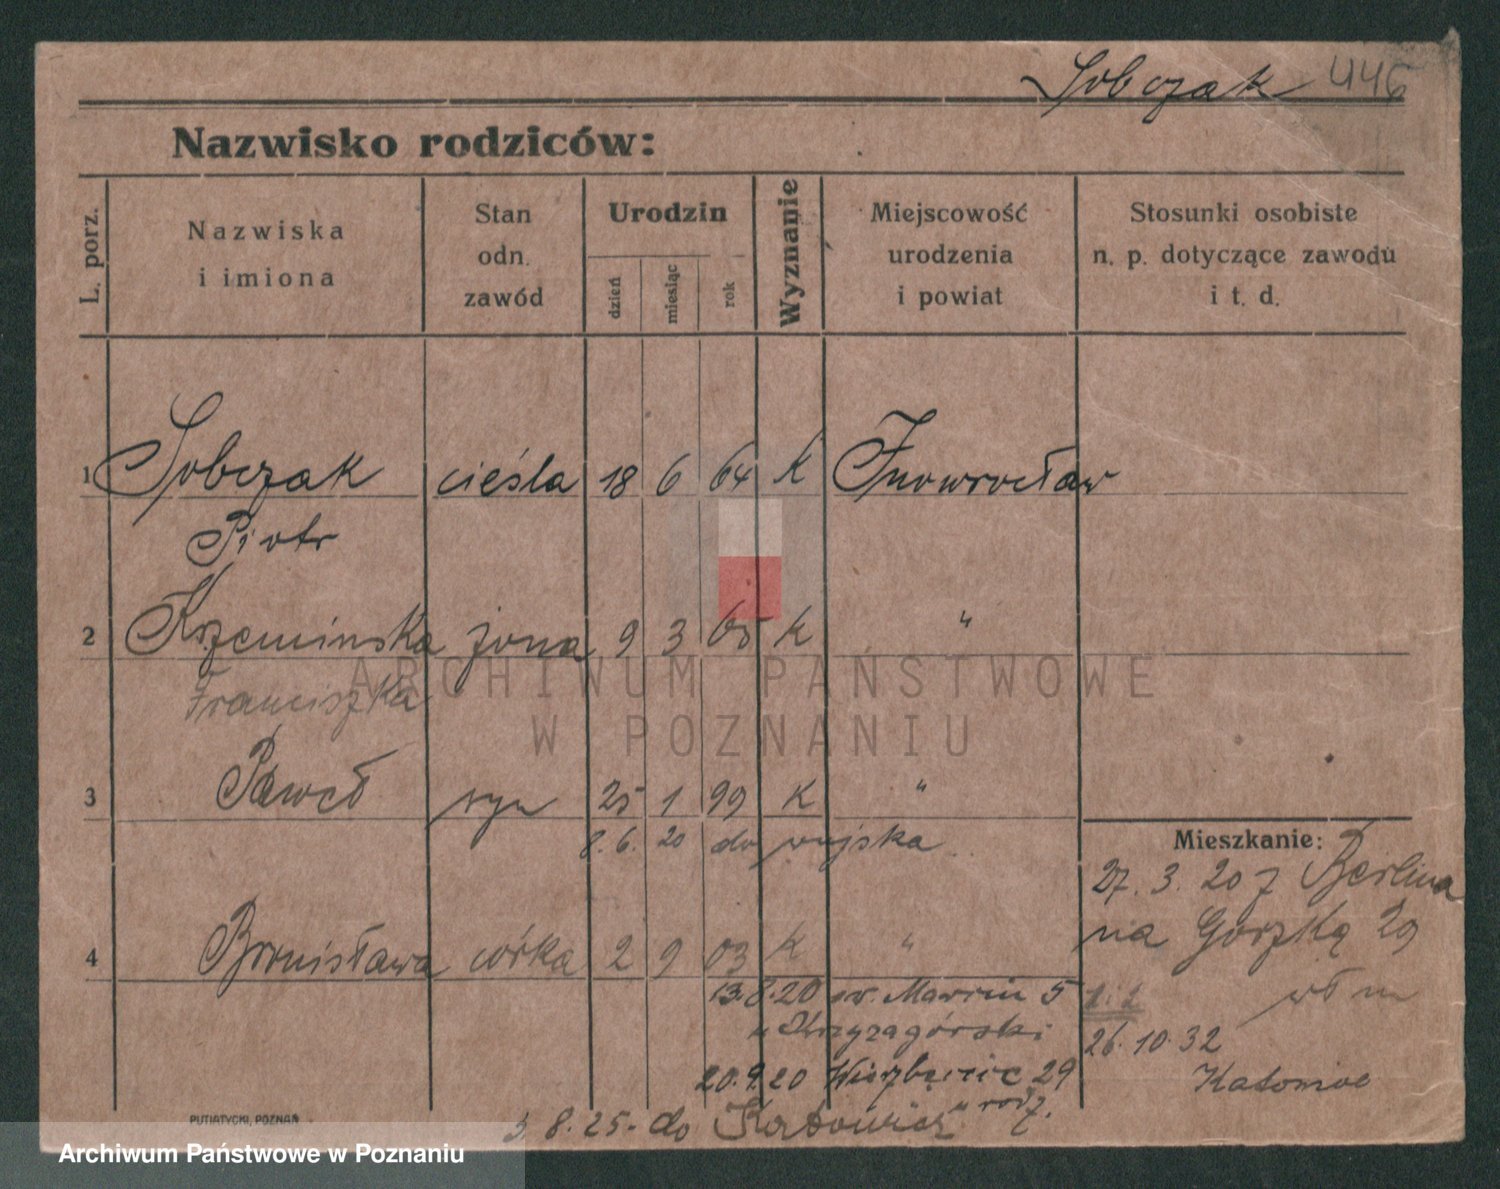 Sobczak 446
Nazwisko rodziców:
L. porz.
Nazwiska
i imiona
Stan
odn.
zawód
Urodzin
dzień
miesiąc
rok
Wyznanie
Miejscowość
urodzenia
i powiat
Stosunki osobiste
n. p. dotyczące zawodu
i t. d.
1 Sobczak cieśla 18 6 64 K Inowrocław
Piotr
2 Krzemińska żona 9 3 65 K "
Franciszka
3 Paweł syn 25 1 99 K "
8. 6. 20 do wojska
4 Bronisława córka 2 9 03 K "
13.8.20 sw. Marcin 5
u
20.9.20 Wierzbięcic 29
" rodz.
3 8. 25 - do Katowic
Mieszkanie:
27. 3. 20 z Berlina
na Górzką 29
1.1
26. 10. 32
Katowice
PUTIATYCKI, POZNAŃ
ARCHIWUM PAŃSTWOWE
W POZNANIU
Archiwum Państwowe w Poznaniu